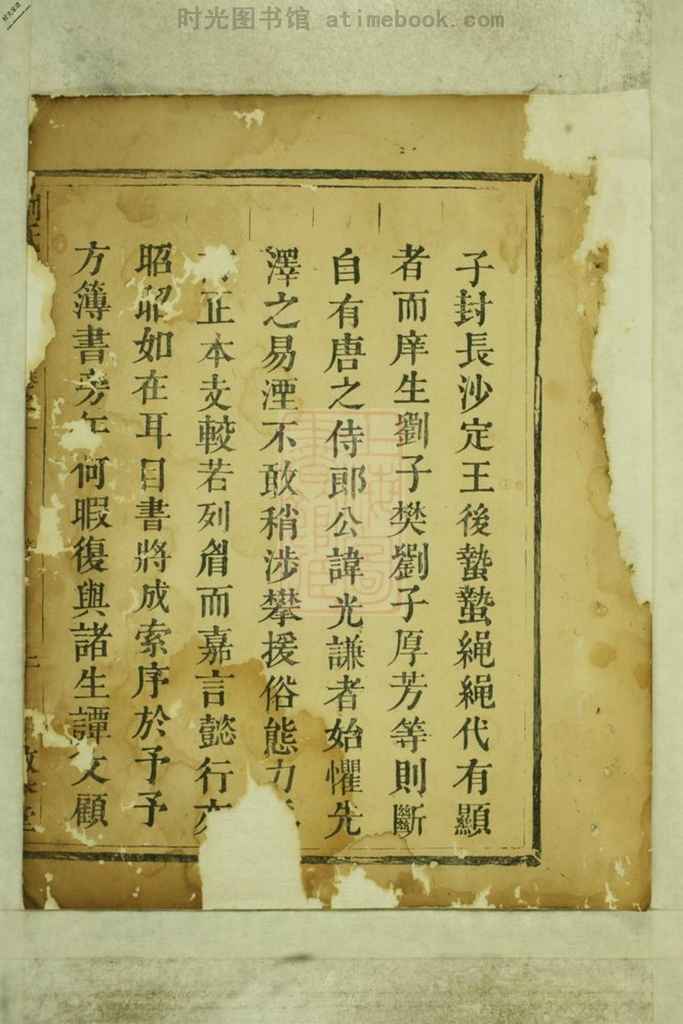 时光图书馆 atimebook.com
子封長沙定王後蟄蟄繩繩代有顯
者而庠生劉子樊劉子厚芳等則斷
自有唐之侍郎公諱光謙者始懼先
澤之易湮不敢稍涉攀援俗態力
正本支較若列眉而嘉言懿行亦
昭昭如在耳目書將成索序於予予
方簿書旁午何暇復與諸生譚文顧